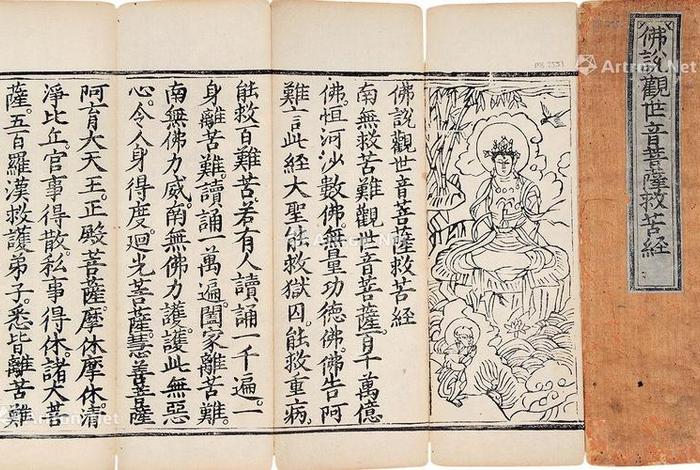 佛說觀世音菩薩救苦經
佛說觀世音菩薩救苦經
南無救苦難觀世音菩薩。百千萬億
佛。恒河沙數佛。無量功德佛。佛告阿
難言。此經大聖。能救獄囚。能救重病。
能救百難苦。若有人讀誦一千遍。一
身離苦難。讀誦一萬遍。闔家離苦難。
南無佛力威。南無佛力護。護此無惡
心。令人身得度。迴光菩薩慧善菩薩
阿育大天王。正殿菩薩。摩休摩休。清
淨比丘。官事得散。私事得休。諸大菩
薩。五百羅漢。救護弟子。悉皆離苦難
Artron.Net